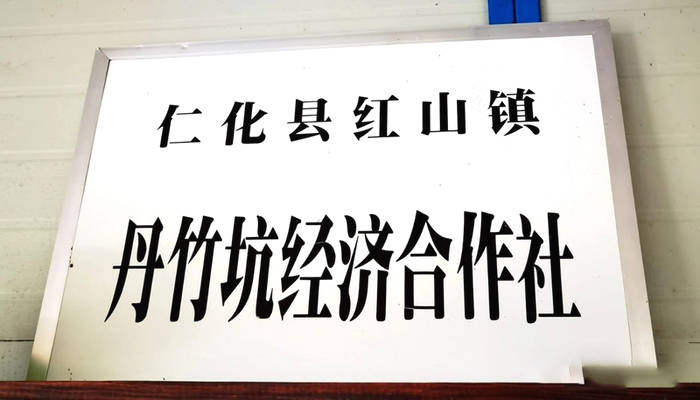 仁化县红山镇
丹竹坑经济合作社